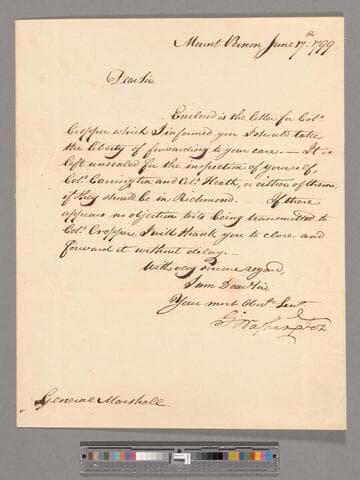 Mount Vernon June 17th 1799
Dear Sir
Enclosed is the letter for Colo.
Cropper which I informed you I should take
the liberty of forwarding to your care. — It is
left unsealed for the inspection of yourself,
Colo. Carrington and Colo. Heath, or either of them,
if they should be in Richmond. — If there
appears no objection to its being transmitted to
Colo. Cropper, I will thank you to close and
forward it without delay. —
With very sincere regard,
I am Dear Sir
Your most Obedt. Servt.
Go. Washington
General Marshall